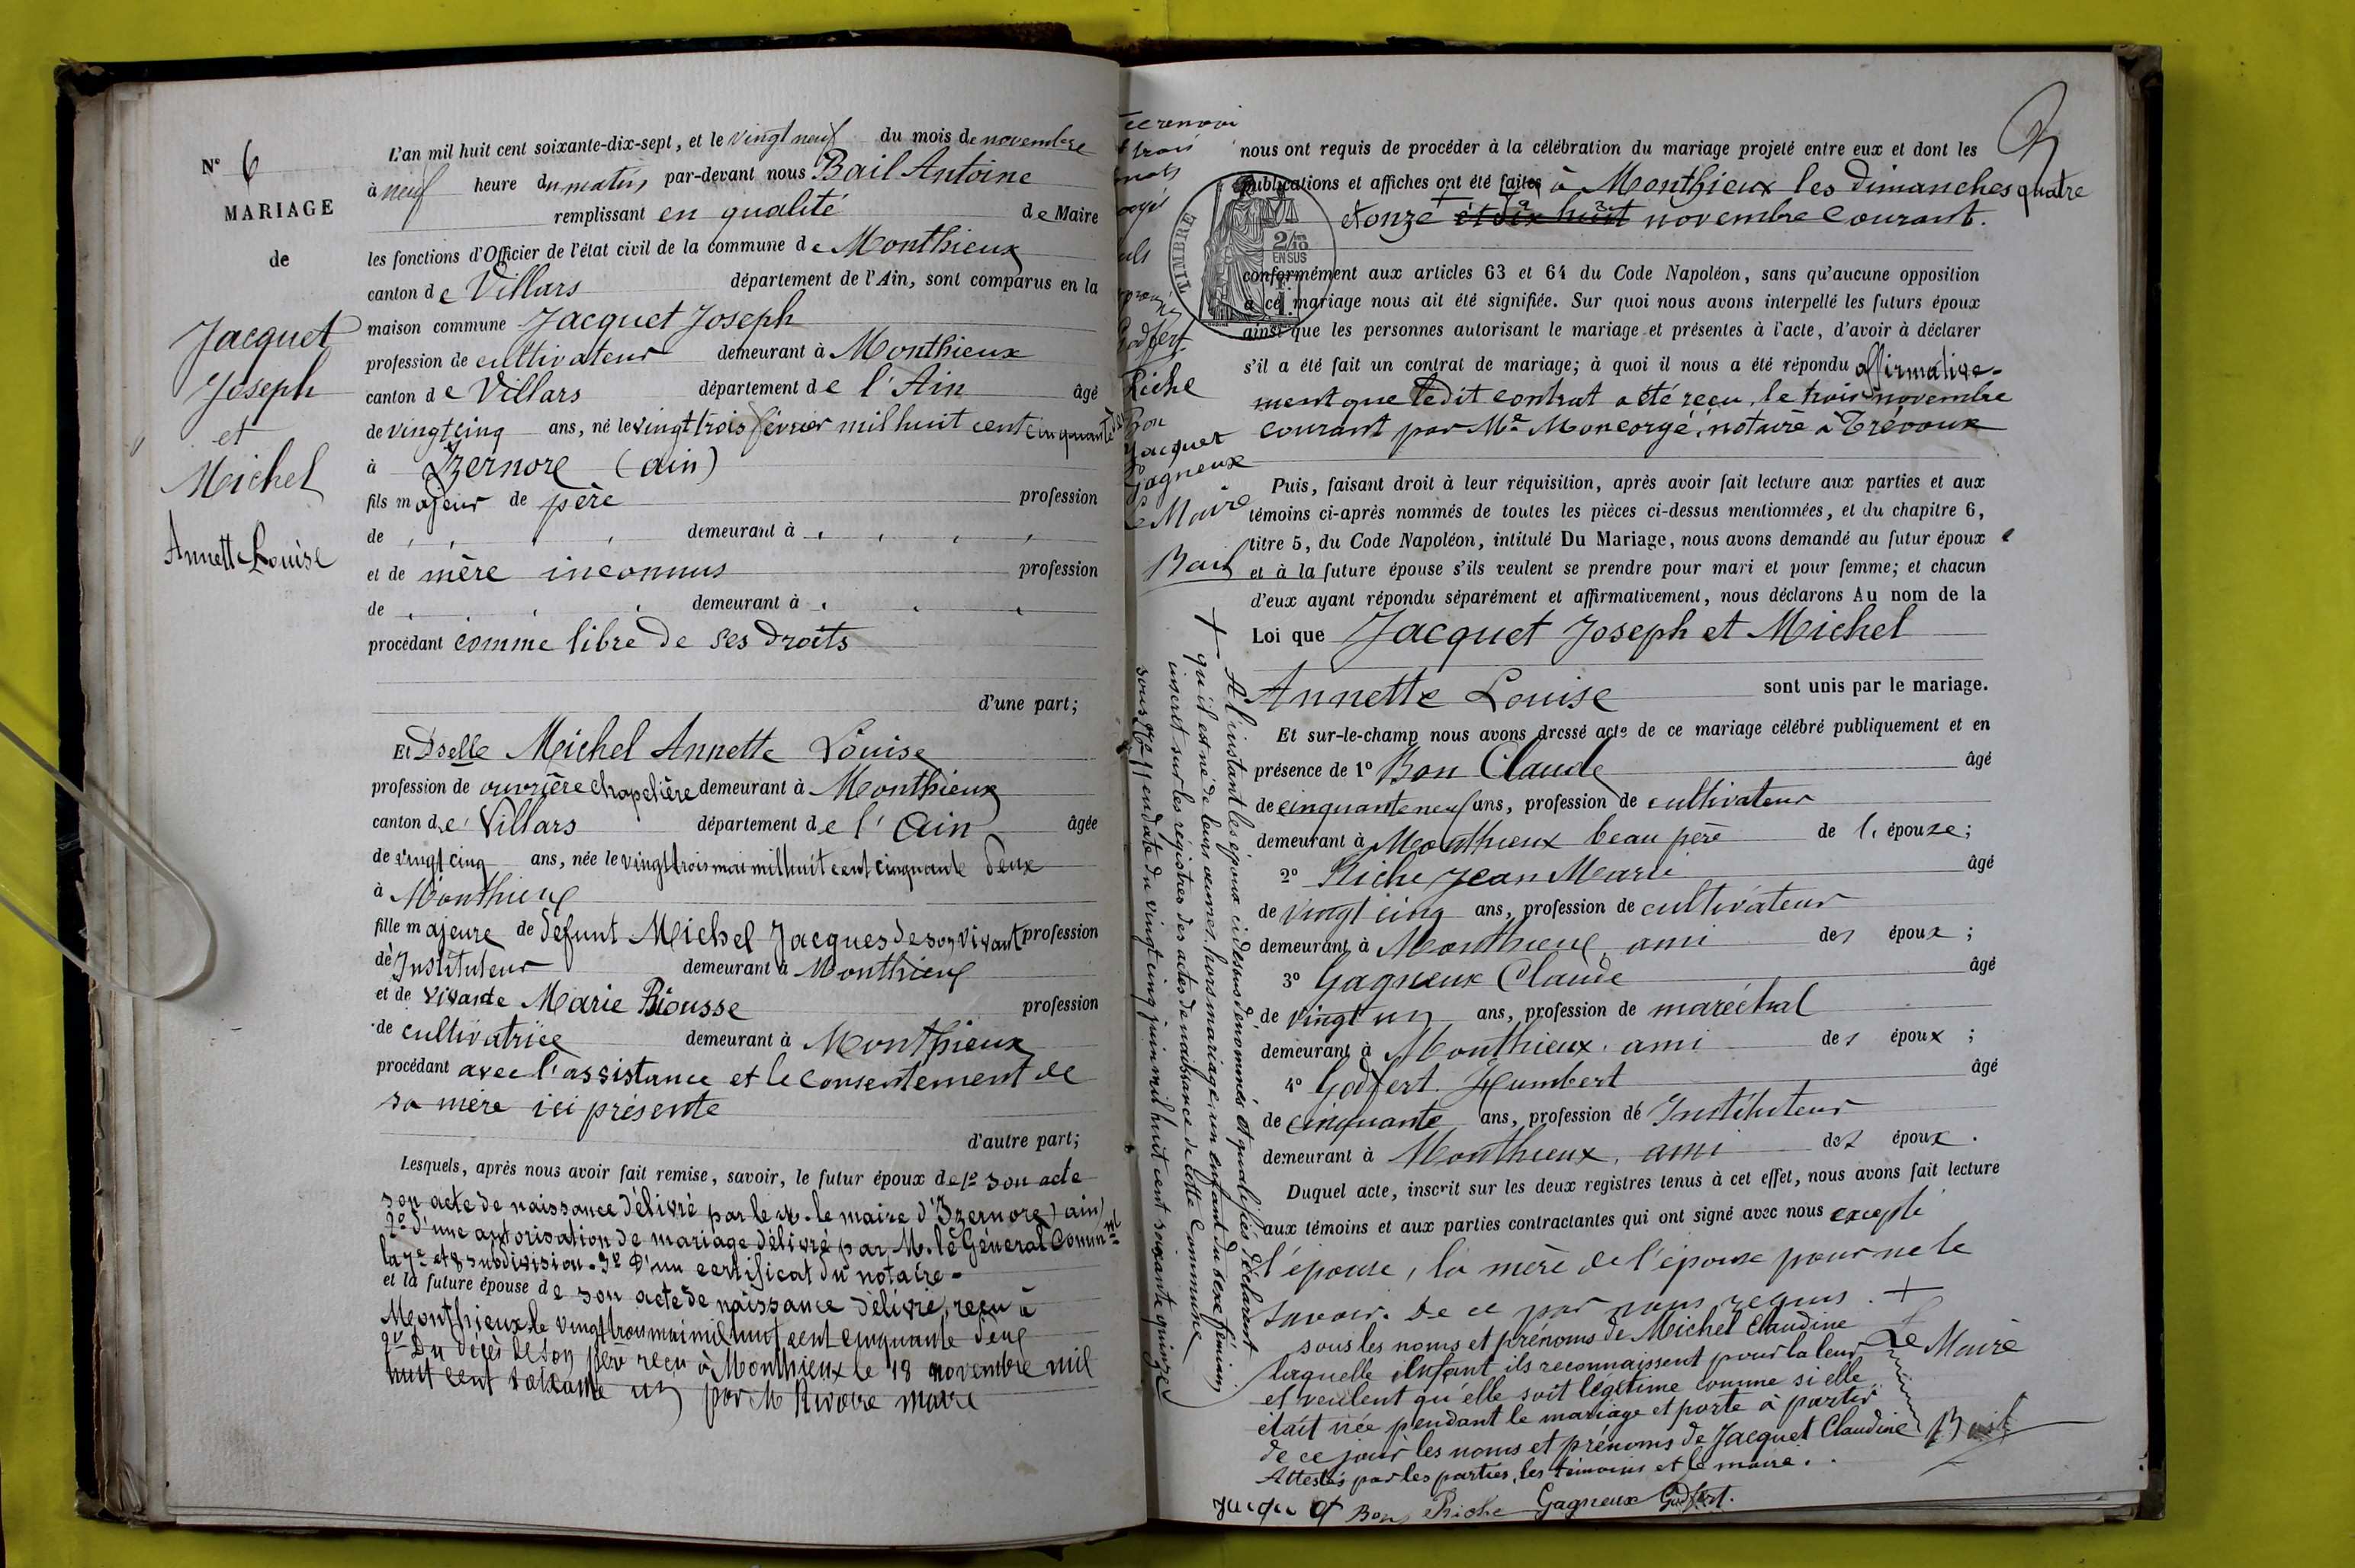 N° 6
MARIAGE
de
Jacquet
Joseph
et
Michel
Annette Louise
L'an mil huit cent soixante-dix-sept, et le vingt neuf du mois de novembre
à neuf heure du matin par-devant nous Bail Antoine
remplissant en qualité de Maire
les fonctions d'Officier de l'état civil de la commune de Monthieux
canton de Villars département de l'Ain, sont comparus en la
maison commune Jacquet Joseph
profession de cultivateur demeurant à Monthieux
canton de Villars département de l'Ain âgé
de vingt cinq ans, né le vingt trois février mil huit cent cinquante
à Izernore (ain)
fils majeur de père profession
de demeurant à
et de mère inconnus profession
de demeurant à
procédant comme libre de ses droits
d'une part;
Et Dselle Michel Annette Louise
profession de ouvrière chapelière demeurant à Monthieux
canton de Villars département de l'Ain âgée
de vingt cinq ans, née le vingt trois mai mil huit cent cinquante deux
à Monthieux
fille majeure de défunt Michel Jacques de son vivant profession
de Instituteur demeurant à Monthieux
et de vivante Marie Riousse profession
de cultivatrice demeurant à Monthieux
procédant avec l'assistance et le consentement de
sa mère ici présente
d'autre part;
Lesquels, après nous avoir fait remise, savoir, le futur époux de 1° son acte
son acte de naissance délivré par le M. le maire d'Izernore (ain)
2° d'une autorisation de mariage délivré par M. le Général Commnt
la 7e et 8 subdivision. 3° D'un certificat du notaire.
et la future épouse de son acte de naissance délivré, reçu à
Monthieux le vingt trois mai mil huit cent cinquante deux
2° Du décès de son père reçu à Monthieux le 18 novembre mil
huit cent soixante un par M Rivoire maire
trois
mots
Godfert
Riche
Bon
Jacquet
Gagneux
Le Maire
Bail
nous ont requis de procéder à la célébration du mariage projeté entre eux et dont les
publications et affiches ont été faites à Monthieux les dimanches quatre
et onze et dix huit novembre courant.
TIMBRE
2/10
EN SUS
conformément aux articles 63 et 64 du Code Napoléon, sans qu'aucune opposition
à ce mariage nous ait été signifiée. Sur quoi nous avons interpellé les futurs époux
ainsi que les personnes autorisant le mariage et présentes à l'acte, d'avoir à déclarer
s'il a été fait un contrat de mariage; à quoi il nous a été répondu affirmative-
ment que ledit contrat a été reçu le trois novembre
courant par Me Moncorgé, notaire à Trévoux
Puis, faisant droit à leur réquisition, après avoir fait lecture aux parties et aux
témoins ci-après nommés de toutes les pièces ci-dessus mentionnées, et du chapitre 6,
titre 5, du Code Napoléon, intitulé Du Mariage, nous avons demandé au futur époux
et à la future épouse s'ils veulent se prendre pour mari et pour femme; et chacun
d'eux ayant répondu séparément et affirmativement, nous déclarons Au nom de la
Loi que Jacquet Joseph et Michel
Annette Louise sont unis par le mariage.
Et sur-le-champ nous avons dressé acte de ce mariage célébré publiquement et en
présence de 1° Bon Claude âgé
de cinquante neuf ans, profession de cultivateur
demeurant à Monthieux beau père de l'épouse;
2° Riche Jean Marie âgé
de vingt cinq ans, profession de cultivateur
demeurant à Monthieux ami des époux;
3° Gagneux Claude âgé
de vingt un ans, profession de maréchal
demeurant à Monthieux. ami des époux;
4° Godfert Humbert âgé
de cinquante ans, profession de Instituteur
demeurant à Monthieux. ami des époux.
Duquel acte, inscrit sur les deux registres tenus à cet effet, nous avons fait lecture
aux témoins et aux parties contractantes qui ont signé avec nous excepté
l'épouse, la mère de l'épouse pour ne le
savoir. De ce par nous requis. +
+ A l'instant les époux ci dessus dénommés et qualifiés déclarent
qu'il est né de leurs œuvres, hors mariage, un enfant du sexe féminin
inscrit sur les registres des actes de naissance de cette Commune
sous No 11 en date du vingt cinq juin mil huit cent soixante quinze
sous les noms et prénoms de Michel Claudine
laquelle enfant ils reconnaissent pour la leur
et veulent qu'elle soit légitime comme si elle
était née pendant le mariage et porte à partir
de ce jour les noms et prénoms de Jacquet Claudine
Attestés par les parties, les témoins et le maire.
Le Maire
Bail
Jacquet Bon Riche Gagneux Godfert.